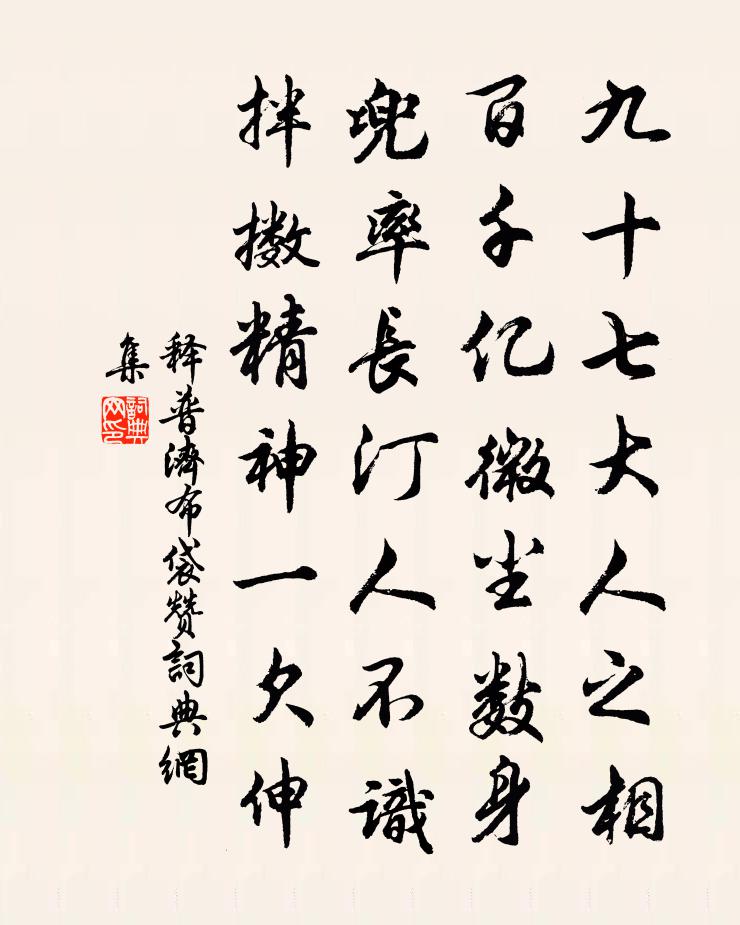 九十七大人之相
百千亿微尘数身
兜率長汀人不識
拌擞精神一欠伸
释普濟布袋赞詞典網
集
詞典
网印